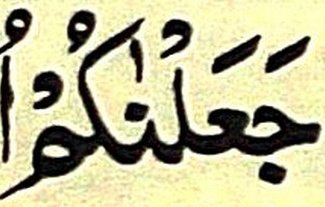 جَعَلْنٰكُمْ